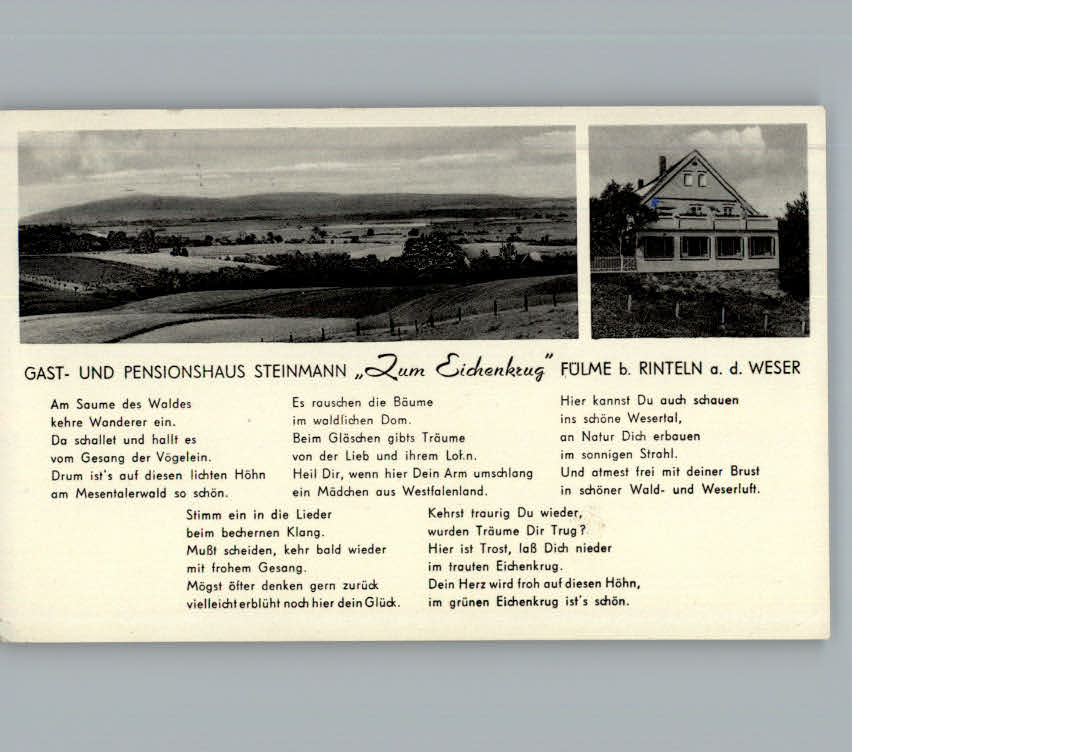 GAST- UND PENSIONSHAUS STEINMANN „Zum Eichenkrug" FÜLME b. RINTELN a. d. WESER
Am Saume des Waldes
kehre Wanderer ein.
Da schallet und hallt es
vom Gesang der Vögelein.
Drum ist's auf diesen lichten Höhn
am Mesentalerwald so schön.
Es rauschen die Bäume
im waldlichen Dom.
Beim Gläschen gibts Träume
von der Lieb und ihrem Lof.n.
Heil Dir, wenn hier Dein Arm umschlang
ein Mädchen aus Westfalenland.
Hier kannst Du auch schauen
ins schöne Wesertal,
an Natur Dich erbauen
im sonnigen Strahl.
Und atmest frei mit deiner Brust
in schöner Wald- und Weserluft.
Stimm ein in die Lieder
beim bechernen Klang.
Mußt scheiden, kehr bald wieder
mit frohem Gesang.
Mögst öfter denken gern zurück
vielleicht erblüht noch hier dein Glück.
Kehrst traurig Du wieder,
wurden Träume Dir Trug?
Hier ist Trost, laß Dich nieder
im trauten Eichenkrug.
Dein Herz wird froh auf diesen Höhn,
im grünen Eichenkrug ist's schön.